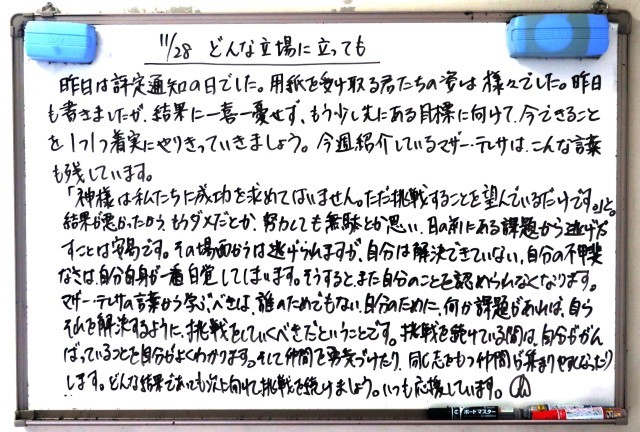 11/28 どんな立場に立っても
昨日は評定通知の日でした。用紙を受け取る君たちの姿は様々でした。昨日
も書きましたが、結果に一喜一憂せず、もう少し先にある目標に向けて、今できること
を1つ1つ着実にやりきっていきましょう。今週紹介しているマザー・テレサは、こんな言葉
も残しています。
「神様は私たちに成功を求めてはいません。ただ挑戦することを望んでいるだけです。」と。
結果が悪かったから、もうダメだとか、努力しても無駄とか思い、目の前にある課題から逃げだ
すことは容易です。その場面からは逃げられますが、自分は解決できていない、自分の不甲斐
なさは、自分自身が一番自覚してしまいます。そうすると、また自分のことを認められなくなります。
マザー・テレサの言葉から学ぶべきは、誰のためでもない、自分のために、何か課題があれば、自ら
それを解決するように、挑戦をしていくべきだということです。挑戦を続けている間は、自分ががん
ばっていることを自分がよくわかります。そして仲間を勇気づけたり、同じ志をもつ仲間が集まりやすくなったり
します。どんな結果であっても次に向けて挑戦を続けましょう。いつも応援しています。
ボードマスター